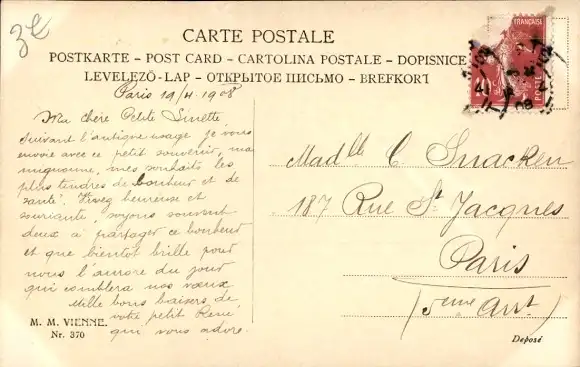 3€
CARTE POSTALE
POSTKARTE – POST CARD – CARTOLINA POSTALE – DOPISNICE
LEVELEZŐ-LAP – ОТКРЫТОЕ ПИСЬМО – BREFKORT
Paris 19/4. 1908
Ma chère Petite Sinette
Suivant l'antique usage je vous
envoie avec ce petit souvenir, ma
mignonne, mes souhaits les
plus tendres de bonheur et de
santé. Vivez heureuse et
souriante, soyons souvent
deux à partager ce bonheur
et que bientôt brille pour
nous l'aurore du jour
qui comblera nos vœux
Mille bons baisers de
votre petit René
qui vous adore.
M. M. VIENNE.
Nr. 370
FRANÇAISE
POSTES
10
08
Madlle C. Snacken
187 Rue St Jacques
Paris
(5eme Arrt)
Deposé